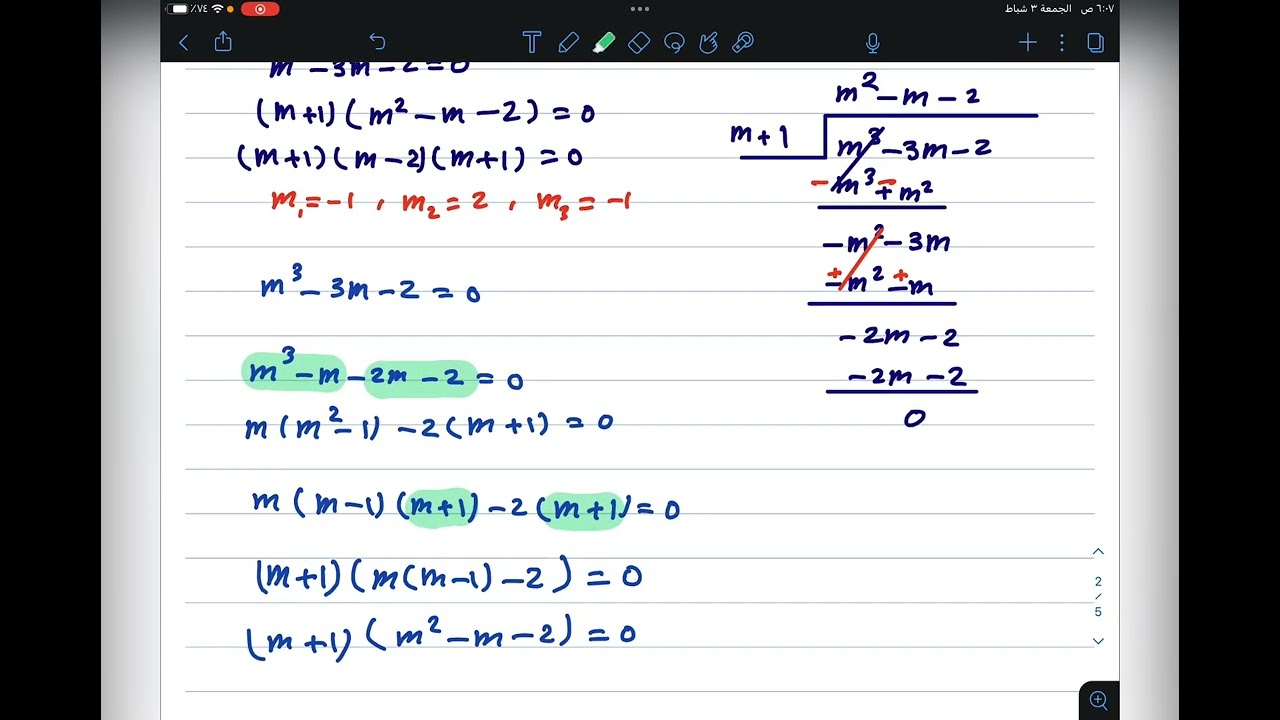 ٪٧٤ ٦:٠٧ ص الجمعة ٣ شباط
m³ - 3m - 2 = 0
(m+1)(m² - m - 2) = 0
(m+1)(m-2)(m+1) = 0
m₁ = -1 , m₂ = 2 , m₃ = -1
m³ - 3m - 2 = 0
m³ - m - 2m - 2 = 0
m(m² - 1) - 2(m+1) = 0
m(m-1)(m+1) - 2(m+1) = 0
(m+1)(m(m-1) - 2) = 0
(m+1)(m² - m - 2) = 0
m² - m - 2
m+1 m³ - 3m - 2
- - m³ + m²
-m² - 3m
+ + -m² - m
-2m - 2
-2m - 2
0
2
/
5